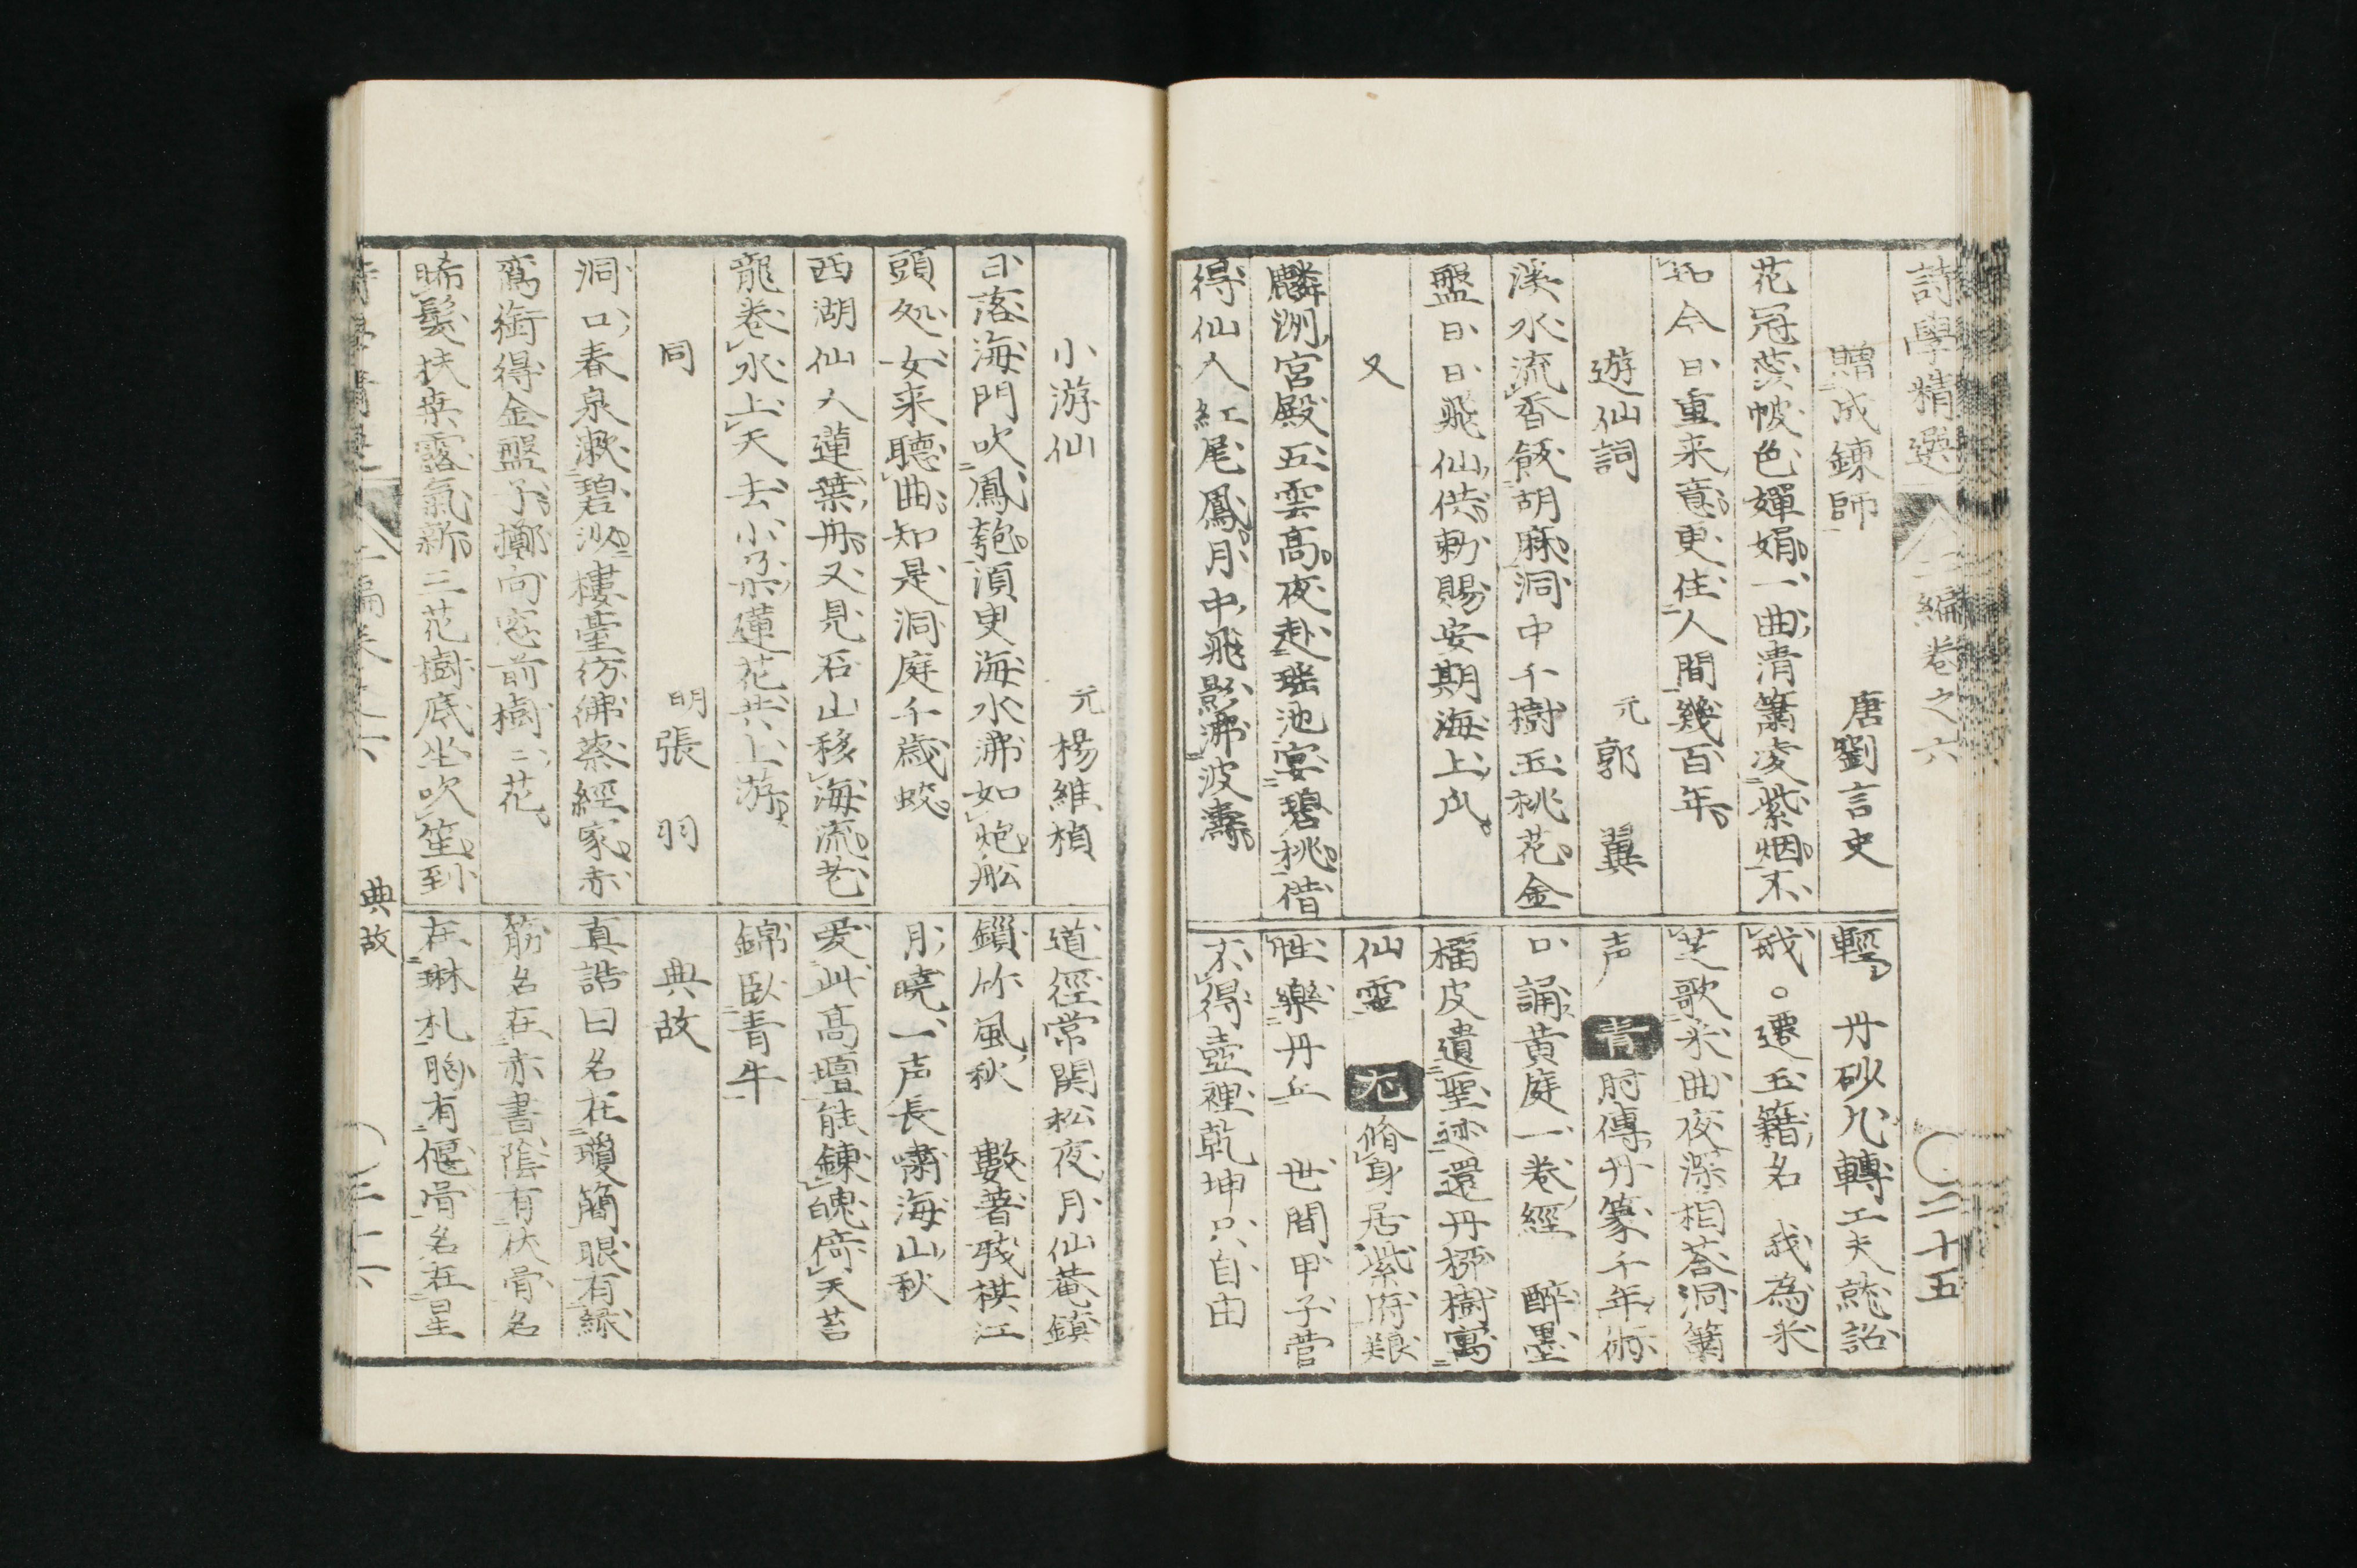 詩學精選 二編卷之六 二十五
贈成鍊師 唐劉言史
花冠蘂帔色嬋娟一曲清簫凌紫烟不
知今日重来意更住人間幾百年
遊仙詞 元郭翼
溪水流香飯胡麻洞中千樹玉桃花金
盤日日飛仙供勅賜安期海上瓜
又
麟洲宮殿五雲高夜赴瑤池宴碧桃借
得仙人紅尾鳳月中飛影沸波濤
輕 丹砂九轉工夫就詔
我○遷玉籍名 我為釆
芝歌釆曲夜深相荅洞簫
声 青肘傳丹篆千年術
口誦黄庭一巻經 醉墨
榴皮遺聖迹還丹栁樹寓
仙霊 尤脩身居紫府艱
性樂丹丘 世間甲子菅
不得壺裡乾坤只自由
小游仙 元楊維楨
日落海門吹鳳匏須臾海水沸如炮舩
頭処女来聴曲知是洞庭千歳蛟
西湖仙人蓮葉舟又見石山移海流老
龍卷水上天去小朶蓮花共上游
同 明張羽
洞口春泉漱碧沙樓臺彷彿蔡經家赤
鴍銜得金盤子擲向窓前樹二花
晞髪扶桒露氣新三花樹底坐吹笙到
道徑常関松夜月仙菴鎮
鎻竹風秋 數著残棋江
月暁一声長嘯海山秋
愛此高壇能鍊魄倚天苔
錦臥青牛
典故
真誥曰名在瓊簡眼有緑
筋名在赤書陰有伏骨名
在琳札胸有偃骨名在星
典故